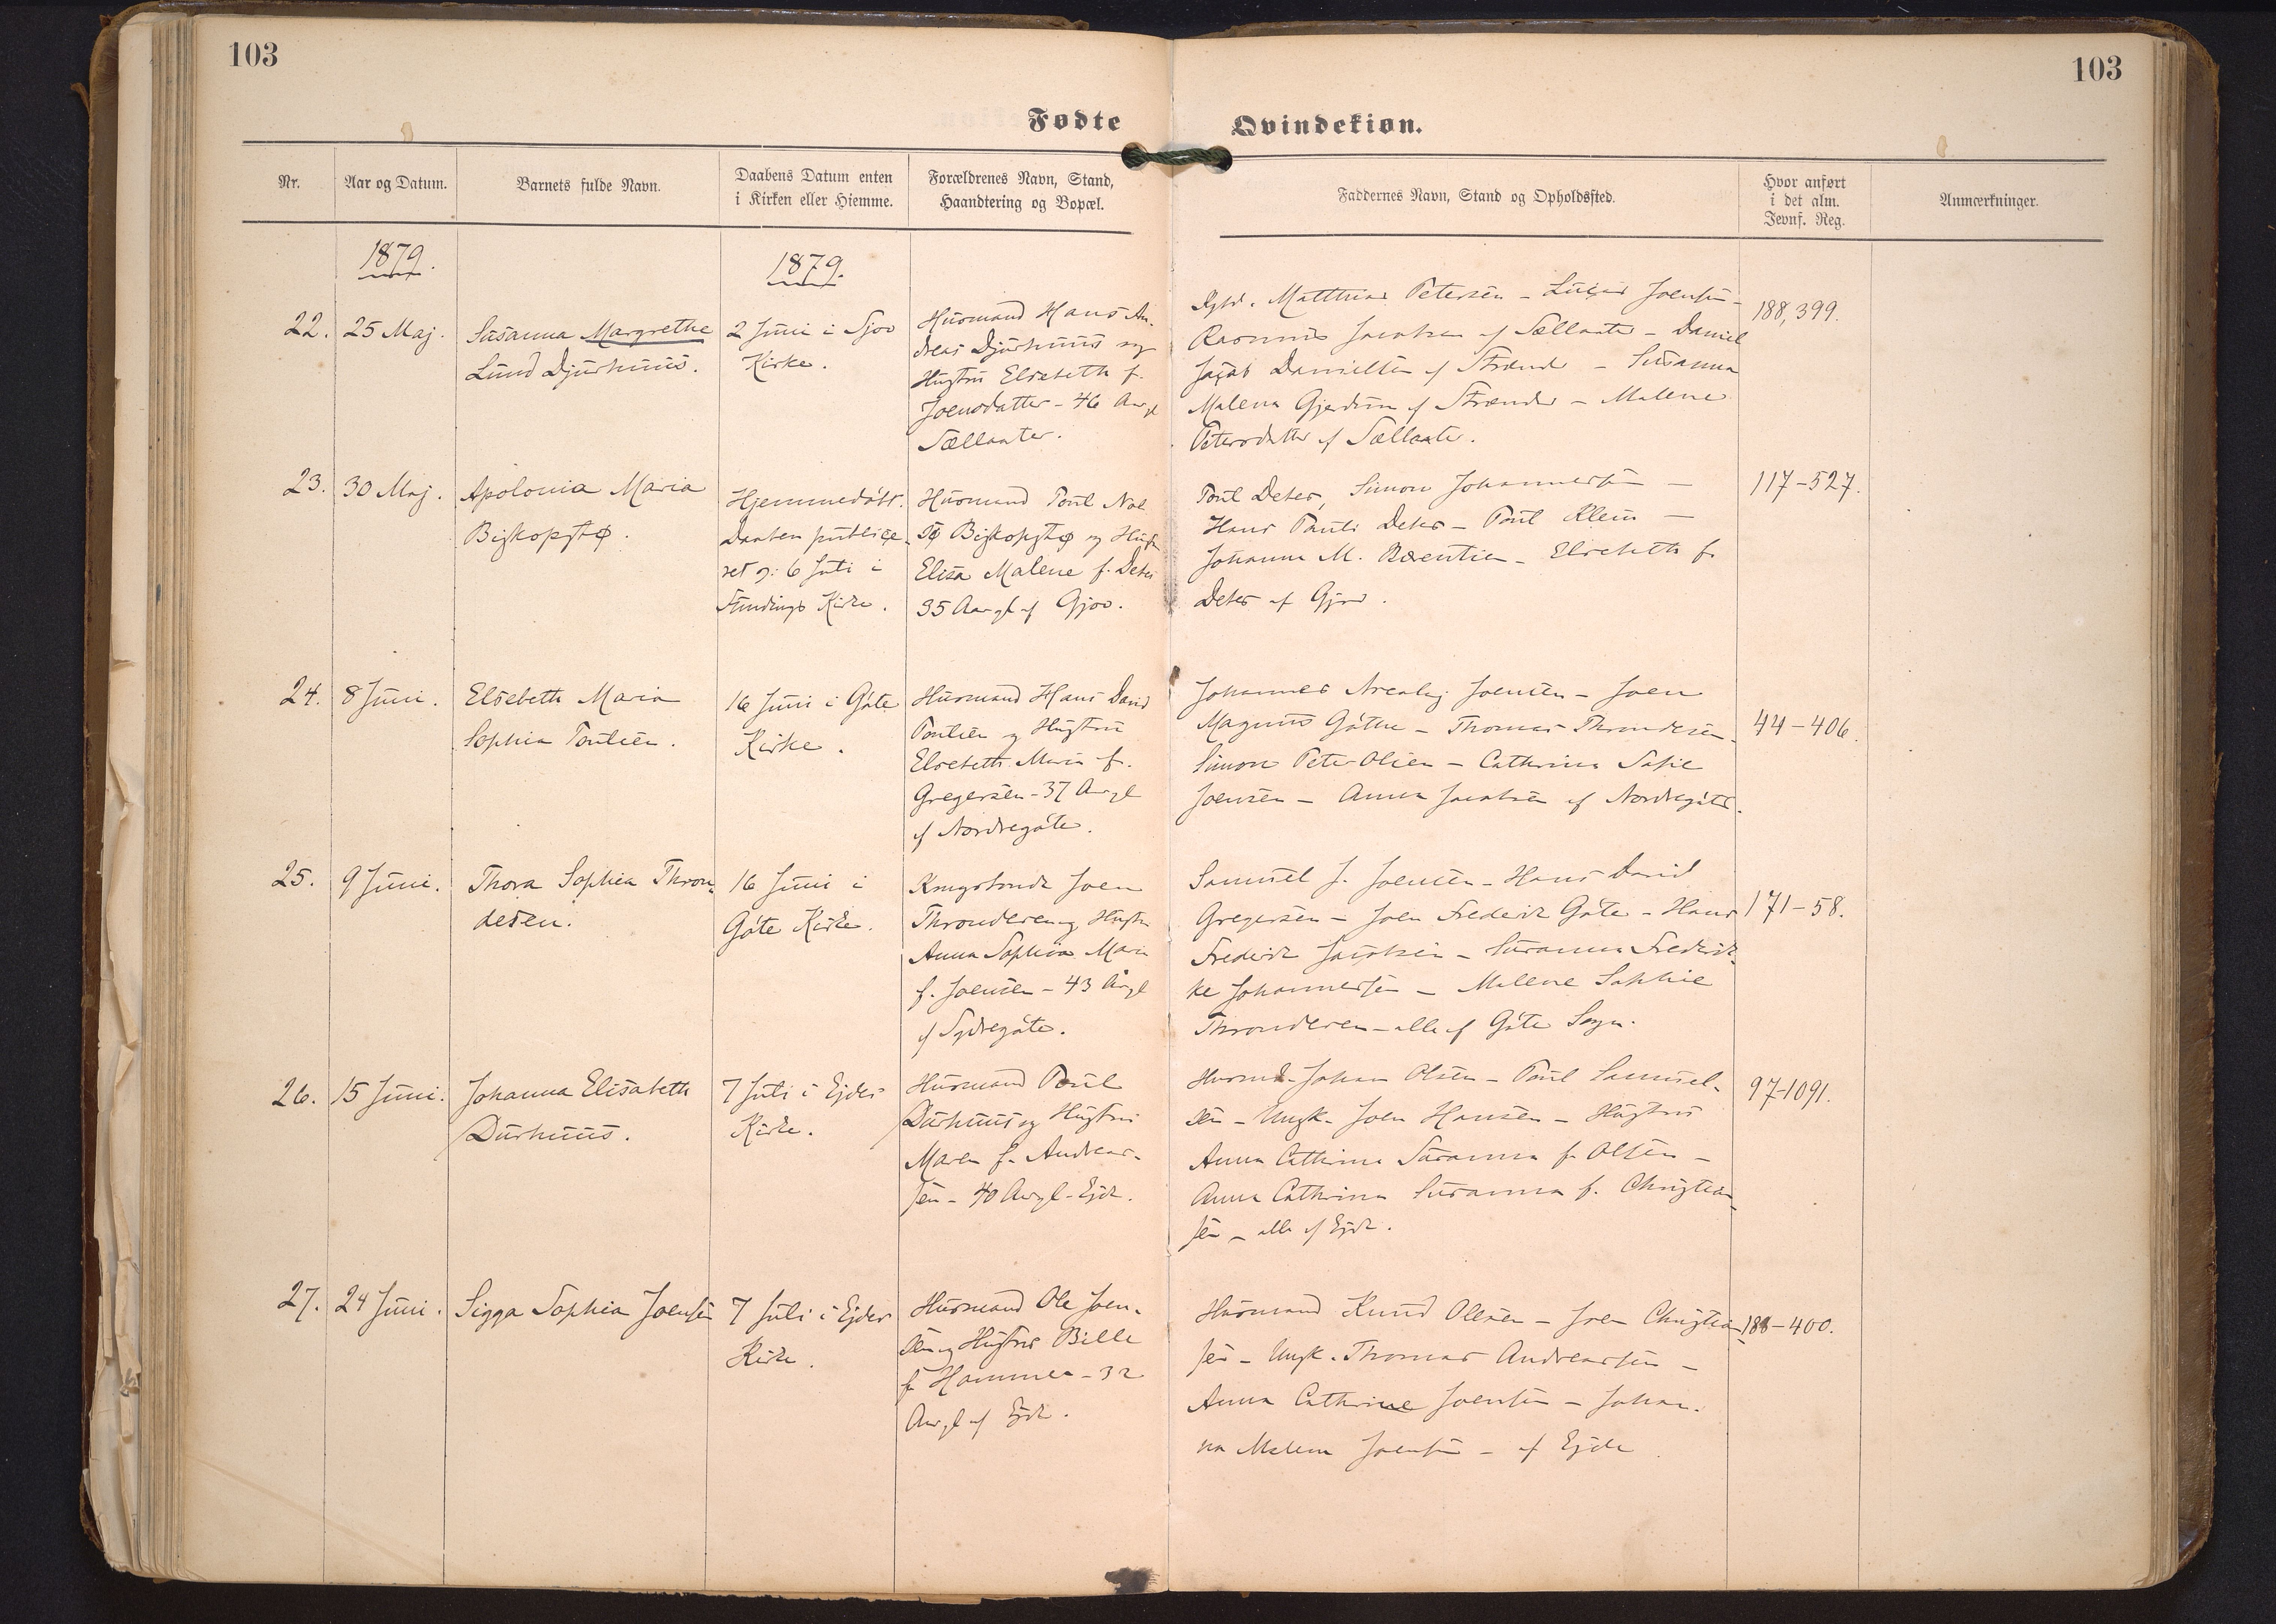 103
103
Fødte
Qvindekiøn.
Nr.
Aar og Datum.
Barnets fulde Navn.
Daabens Datum enten
i Kirken eller Hiemme.
Forældrenes Navn, Stand,
Haandtering og Bopæl.
Faddernes Navn, Stand og Opholdssted.
Hvor anført
i det alm.
Jevnf. Reg.
Anmærkninger.
1879.
1879.
22.
25 Maj.
Susanna Margrethe
Lund Djurhuus.
2 Juni i Sjov
Kirke.
Husmand Hans An-
dreas Djurhuus og
Hustru Elsebeth f.
Joensdatter - 46 Aar gl
Sællaater.
Matthias Petersen - Lucas Joensen -
Rasmus Jacobsen af Sællaater - Daniel
Jacob Danielsen af Strænder - Susanna
Malena Gjerdum af Strænder - Malene
Petersdatter af Sællaater.
188, 399.
23.
30 Maj.
Apolonia Maria
Biskopstø.
Hjemmedøbt.
Daaben publice-
ret 6 Juli i
Fundings Kirke.
Husmand Poul Nol
Biskopstø og Hustru
Elisa Malene f. Debes
35 Aar gl af Gjov.
Poul Debes, Simon Johannessen -
Hans Pauli Debes - Poul Klein -
Johanna M. Berentsen - Elsebeth f.
Debes af Gjov.
117-527.
24.
8 Juni.
Elsebeth Maria
Sophia Poulsen.
16 Juni i Gøte
Kirke.
Husmand Hans David
Poulsen og Hustru
Elsebeth Maria f.
Gregersen - 37 Aar gl
af Nordregøte.
Johannes Joensen - Joen
Magnus Gøthe - Thomas Throndesen -
Simon Peter Olsen - Cathrina Sofie
Joensen - Anna Jacobsen af Nordregøte.
44-406.
25.
9 Juni.
Thora Sophia Thron-
desen.
16 Juni i
Gøte Kirke.
Kongsbonde Joen
Throndesen og Hustru
Anna Sophia Maria
f. Joensen - 43 Aar gl
af Sydregøte.
Samuel J. Joensen - Hans David
Gregersen - Joen Frederik Gøte - Hans
Frederik Jacobsen - Susanna Frederik-
ke Johannessen - Malene Sophie
Throndesen - alle af Gøte Sogn.
171-58.
26.
15 Juni.
Johanna Elisabeth
Durhuus.
7 Juli i Ejdes
Kirke.
Husmand Poul
Durhuus og Hustru
Maren f. Andreas-
sen - 40 Aar gl - Ejde.
Husmd. Johan Olsen - Poul Samuel-
sen - Ungk. Joen Hansen - Hustru
Anna Cathrina Susanna f. Olsen -
Anna Cathrina Susanna f. Christian-
sen - alle af Ejde.
97-1091.
27.
24 Juni.
Sigga Sophia Joensen
7 Juli i Ejdes
Kirke.
Husmand Ole Joen-
sen og Hustru Bille
f. Hammer - 32
Aar gl af Ejde.
Husmand Knud Olesen - Joen Christian-
sen - Ungk. Thomas Andreassen -
Anna Cathrine Joensen - Johan-
na Malena Joensen - af Ejde
188-400.